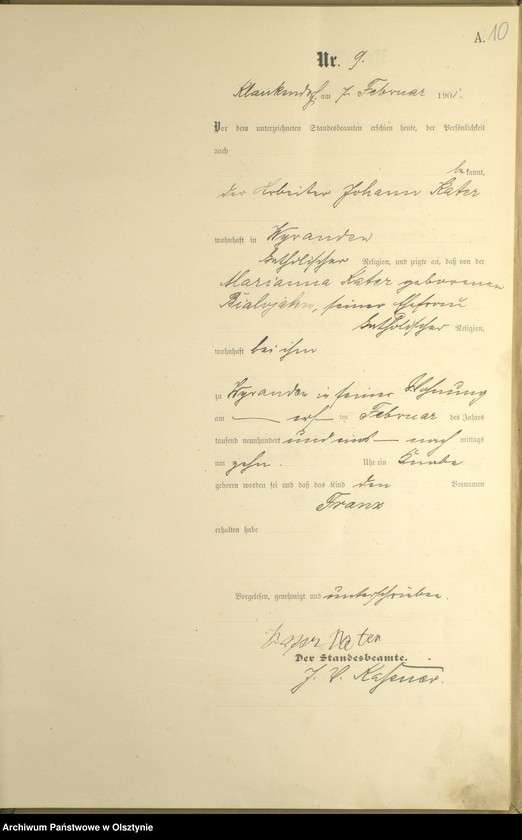 A. 10
Nr. 9.
Klaukendorf, am 7. Februar 1901.
Vor dem unterzeichneten Standesbeamten erschien heute, der Persönlichkeit
nach
bekannt,
der Arbeiter Johann Kater
wohnhaft in Wyranden
katholischer Religion, und zeigte an, daß von der
Marianna Kater geborenen
seiner Ehefrau
katholischer Religion,
wohnhaft bei ihm
zu Wyranden in seiner Wohnung
am ten Februar des Jahres
tausend neunhundert und eins nach mittags
um zehn Uhr ein Knabe
geboren worden sei und daß das Kind den Vornamen
Franz
erhalten habe
Vorgelesen, genehmigt und unterschrieben.
Kater
Der Standesbeamte.